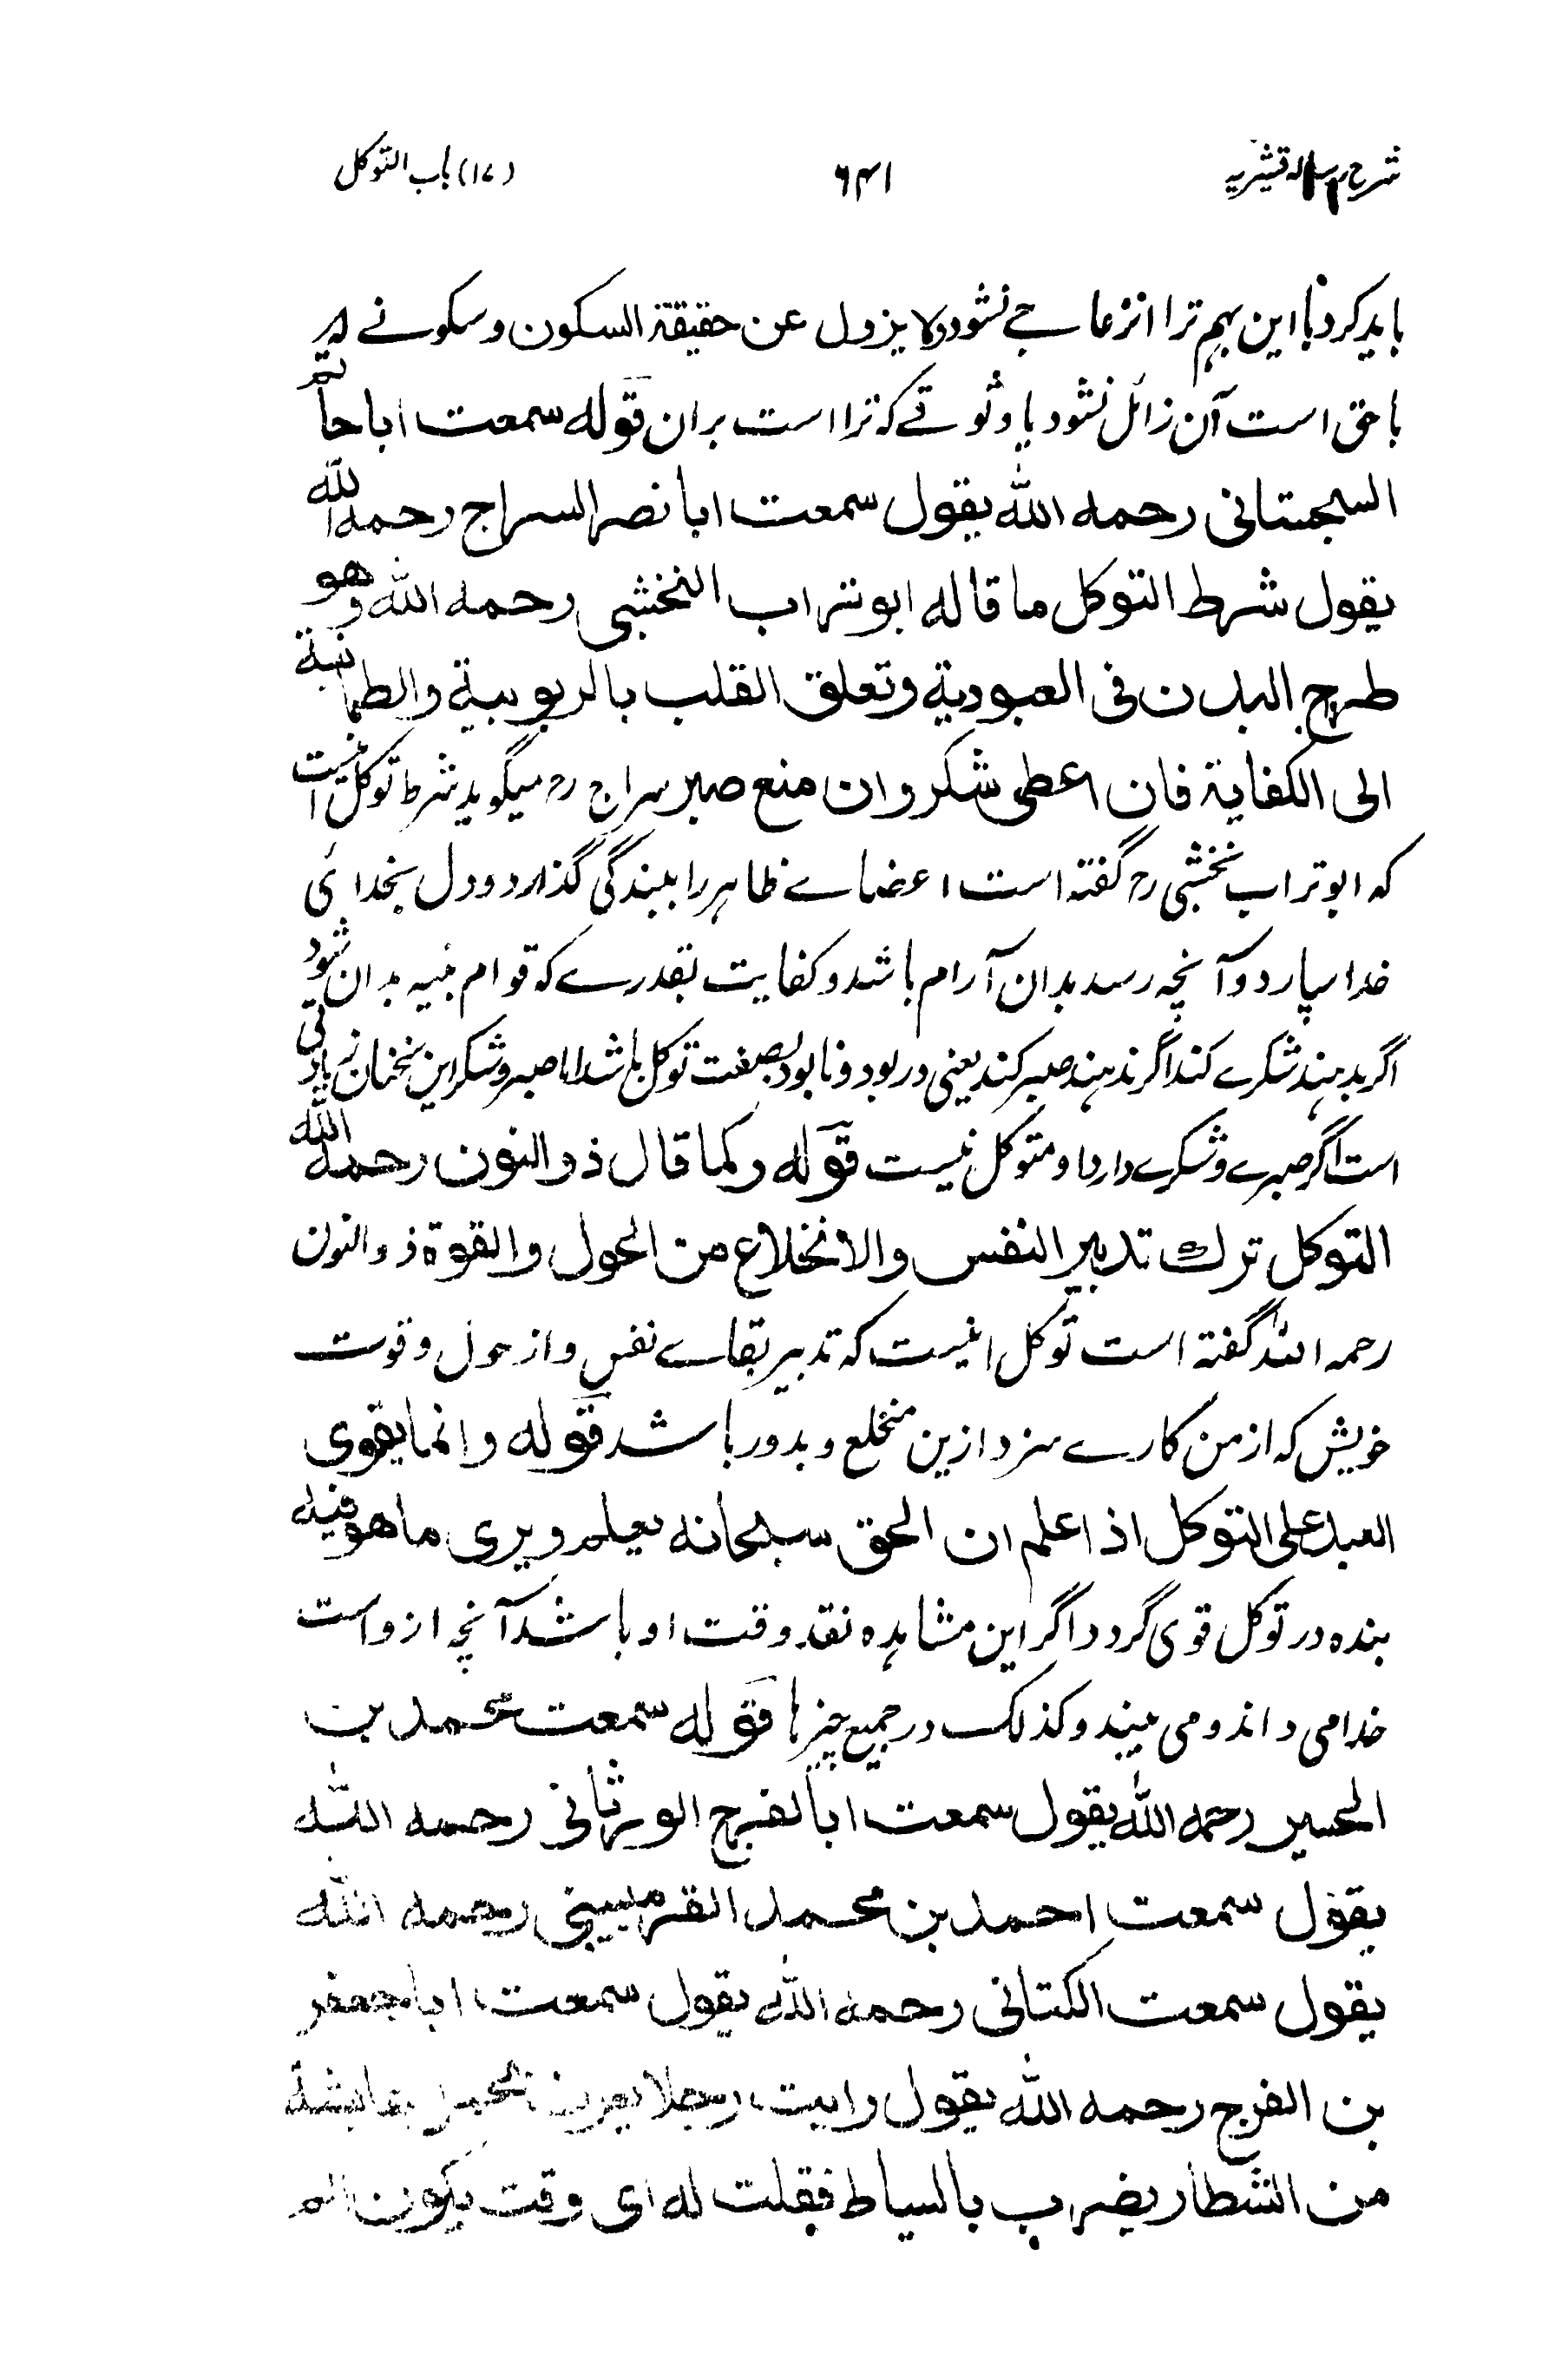 شرح رساله قشیریه ۶۴۱ (۱۷) باب التوکل
باید کرد با این ہم ترا انزعاجے نشود ولا یزول عن حقیقة السکون وسکونے که
باحق است آن زائل نشود با وثوقے که ترا است بران قوله سمعت اباحاتم
السجستانی رحمه الله یقول سمعت ابا نصر السراج رحمه الله
یقول شرط التوکل ما قاله ابو تراب النخشبی رحمه الله وهو
طرح البدن فی العبودیة وتعلق القلب بالربوبیة والطمانیة
الی الکفایة فان اعطی شکر وان منع صبر سراج رح میگوید شرط توکل اینست
که ابو تراب نخشبی رح گفته است اعضاے ظاہر را ببندگی گذارد و دل بخدائی
خدا سپارد و آنچہ رسد بدان آرام باشد و کفایت بقدرے که قوام بنیہ بدان شود
اگر بدہند شکرے کند اگر ندہند صبر کند یعنی در بود و نابود بصفت توکل باشد اما صبر و شکر این سخنان زیادتی
است اگر صبرے و شکرے دارد او متوکل نیست قوله وکما قال ذو النون رحمه الله
التوکل ترك تدبیر النفس والانخلاع من الحول والقوة ذو النون
رحمہ اللہ گفتہ است توکل اینست که تدبیر بقاے نفس و از حول و قوت
خویش که از من کارے سزد ازین منخلع و بدور باشد قوله وانما یقوی
العبد علی التوکل اذا علم ان الحق سبحانه یعلم ویری ما هو فیه
بنده در توکل قوی گردد اگر این مشاہدہ نقد وقت او باشد آنچہ ازو است
خدا می داند و می بیند و کذلک در جمیع چیزہا قوله سمعت محمد بن
الحسین رحمه الله یقول سمعت ابا الفرج الورثانی رحمه الله
یقول سمعت احمد بن محمد القرمیسینی رحمه الله
یقول سمعت الکتانی رحمه الله یقول سمعت ابا جعفر
بن الفرج رحمه الله یقول رایت رجلا یعرف بجمل عایشة
من الشطار یضرب بالسیاط فقلت له ای وقت یکون الم